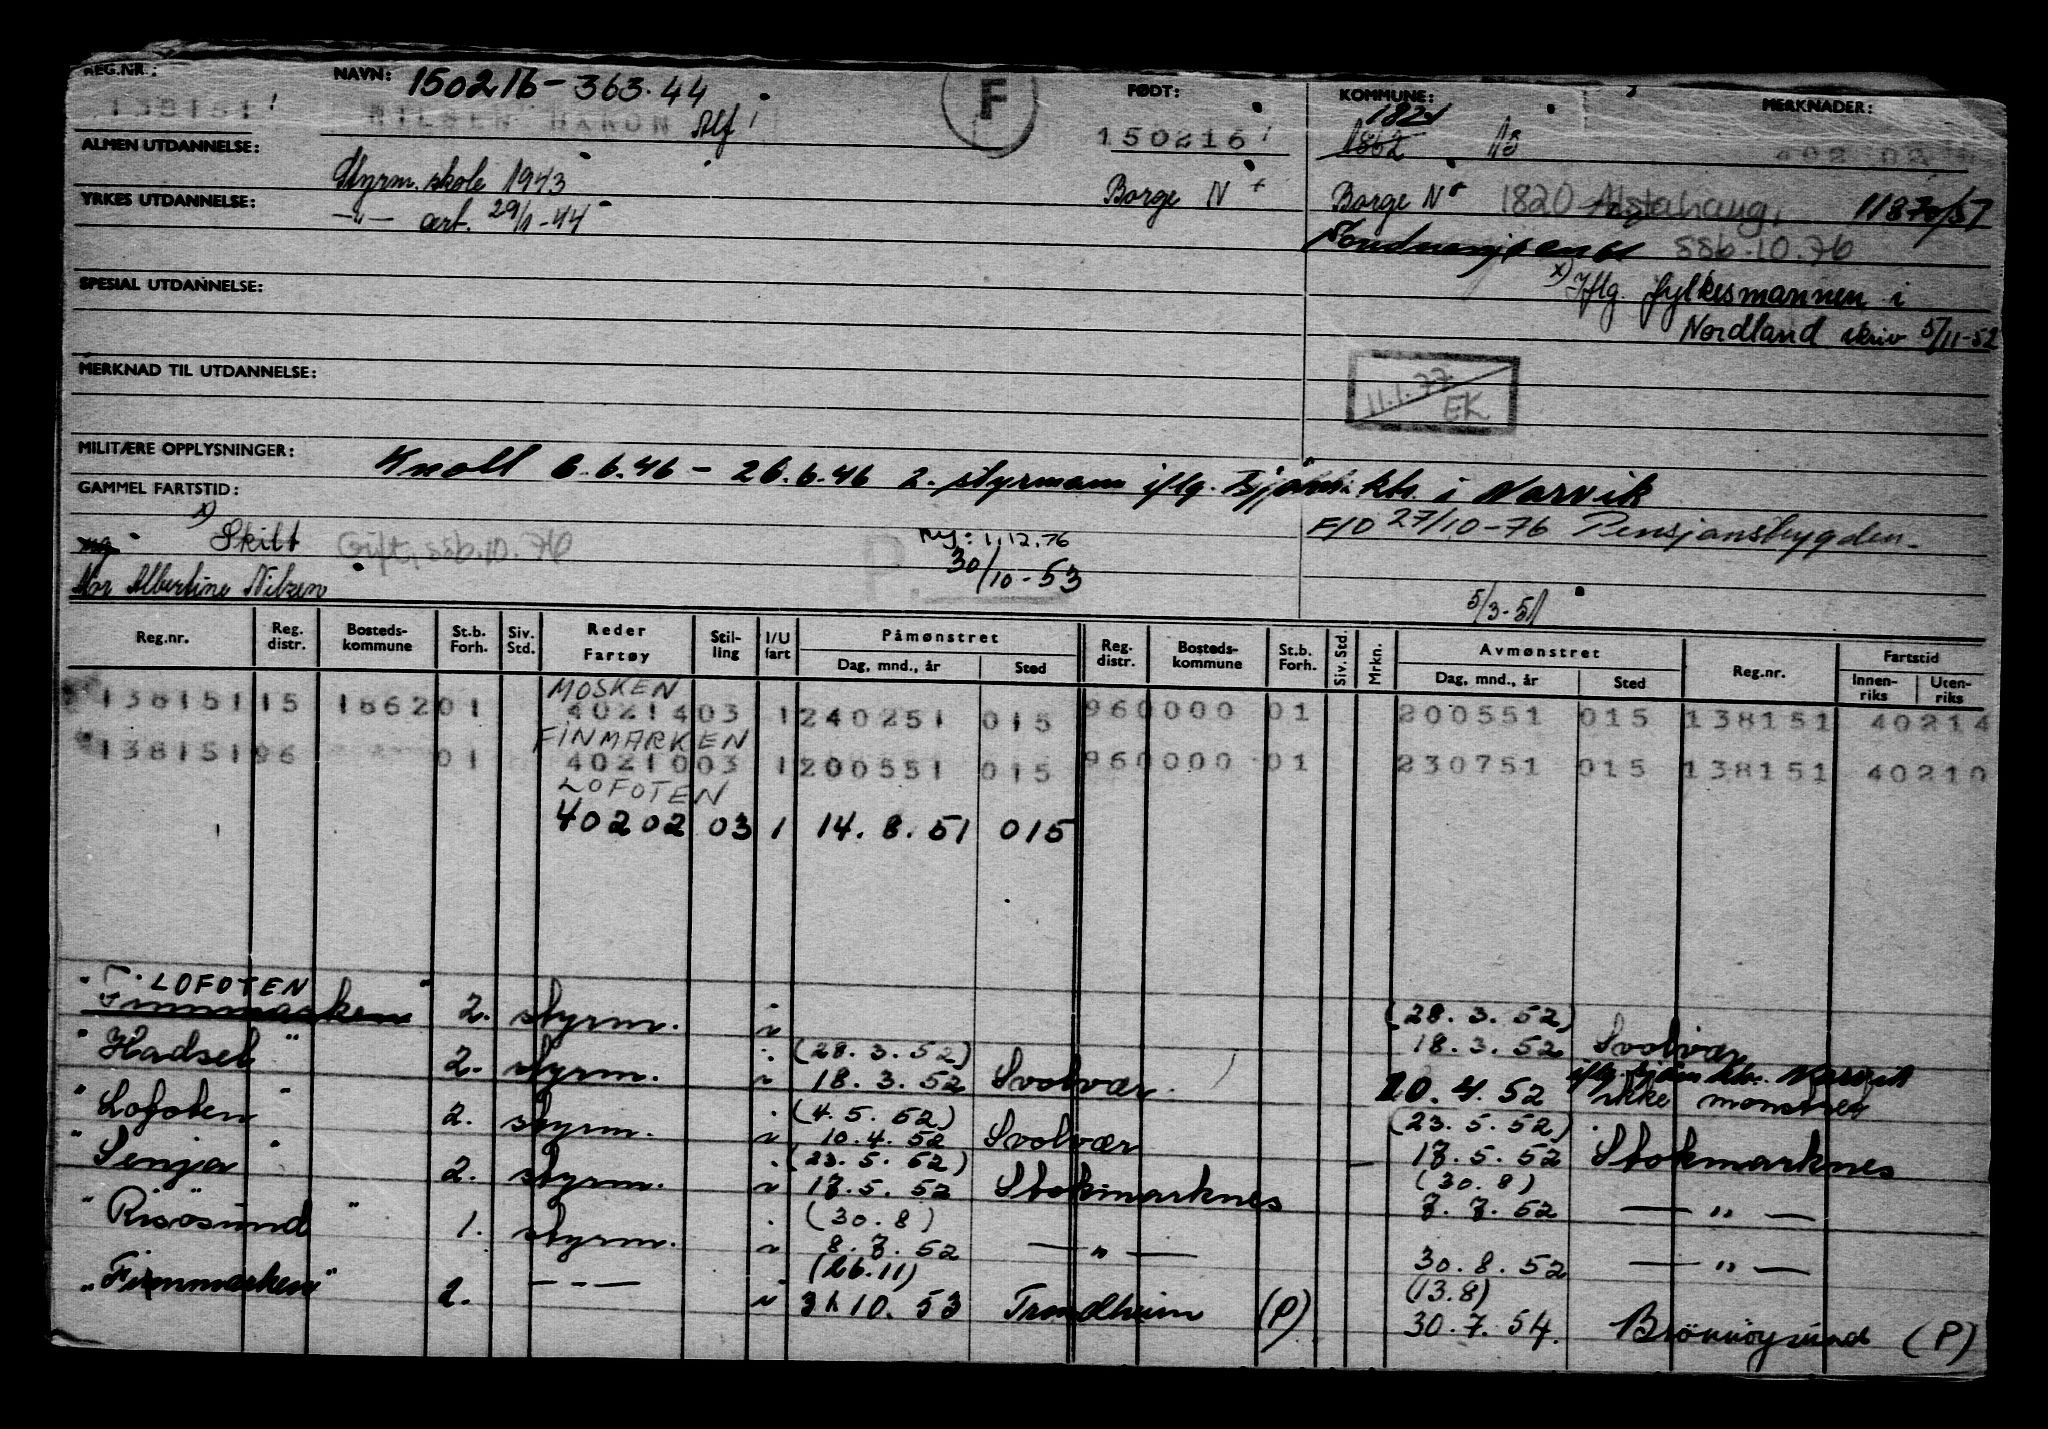 REG.NR.: NAVN: 150216-363.44 F FØDT: KOMMUNE: MERKNADER:
138151 NILSEN HAKON Alf 150216 1821 1862
ALMEN UTDANNELSE:
Styrm. skole 1943 Borge N Borge N 1820 Alstahaug, 11870/57
YRKES UTDANNELSE: —"— ært. 29/1-44
ssb.10.76
SPESIAL UTDANNELSE: x) Iflg. fylkesmannen i
Nordland skriv 5/11-52
MERKNAD TIL UTDANNELSE:
11.1.77 EK
MILITÆRE OPPLYSNINGER:
Knoll 6.6.46 – 26.6.46 2. styrmann iflg. sjöm. ktr. i Narvik
GAMMEL FARTSTID:
F/D 27/10-76 Pensjonstrygden.
x) Skilt Gift, ssb.10.76 P. Ny: 1.12.76
ug 30/10-53
Mor Albertine Nilsen 5/3-51
Reg.nr. Reg. distr. Bosteds-kommune St.b. Forh. Siv. Std. Reder Fartøy Stil-ling I/U fart Påmønstret Dag, mnd., år Sted Reg. distr. Bosteds-kommune St.b. Forh. Siv. Std. Mrkn. Avmønstret Dag, mnd., år Sted Reg.nr. Fartstid Innen-riks Uten-riks
MOSKEN
138151 15 1862 01 40214 03 1 240251 015 96 0000 01 200551 015 138151 40214
FINMARKEN
138151 96 01 40210 03 1 200551 015 96 0000 01 230751 015 138151 40210
LOFOTEN
40202 03 1 14.8.51 015
LOFOTEN
"Finnmarken" 2. styrm. i (28.3.52)
18.3.52 Svolvær
"Hadsel" 2. styrm. i (28.3.52)
18.3.52 Svolvær 10.4.52 iflg. sjöm. ktr. Narvik ikke mönstret
"Lofoten" 2. styrm. i (4.5.52) (23.5.52)
10.4.52 Svolvær 17.5.52 Stokmarknes
"Senja" 2. styrm. i (23.5.52) (30.8)
17.5.52 Stokmarknes 7.7.52 —"—
"Risösund" 1. styrm. i (30.8)
8.7.52 —"— 30.8.52 —"—
"Finnmarken" 2. — - — i (26.11) (13.8)
31.10.53 Trondheim (P) 30.7.54. Brönnöysund (P)